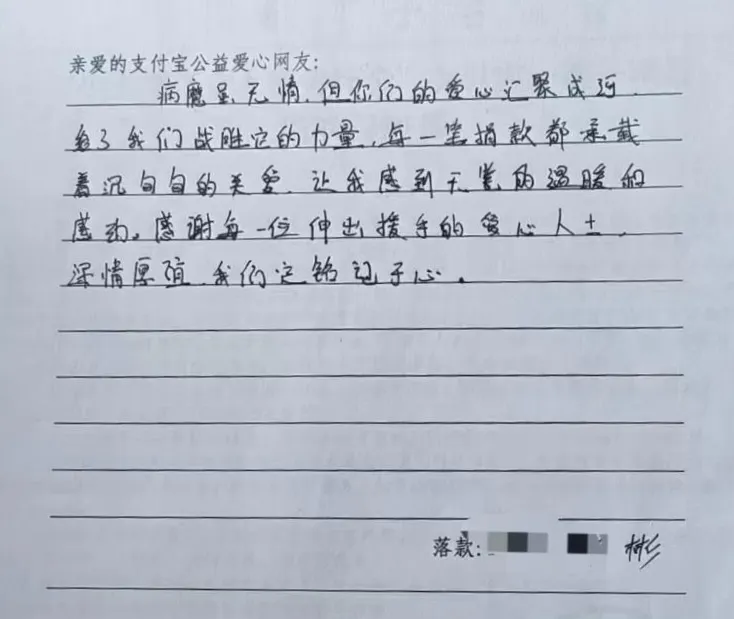 亲爱的支付宝公益爱心网友:
病魔虽无情,但你们的爱心汇聚成河,
给了我们战胜它的力量,每一笔捐款都承载
着沉甸甸的关爱,让我感到无尽的温暖和
感动。感谢每一位伸出援手的爱心人士,
深情厚谊,我们定铭记于心。
落款: 彬